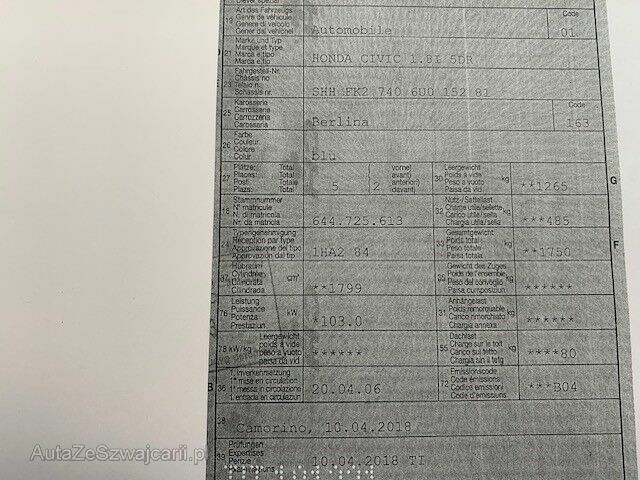 Art des Fahrzeugs
19 Genre de véhicule
Genere di veicolo
Gener dal vehichel
Automobile
Code
01
Marke und Typ
21 Marque et type
Marca e tipo
Marca e tip
HONDA CIVIC 1.8I 5DR
Fahrgestell-Nr.
23 Châssis no
Telaio n.
Schassis nr.
SHH FK2 740 6U0 152 81
Karosserie
25 Carrosserie
Carrozzeria
Carossaria
Berlina
Code
163
Farbe
26 Couleur
Colore
Colur
blu
Plätze: Total
27 Places: Total
Posti: Totale
Plaza: Total
5
2
vorne)
avant)
anteriori)
davant)
Leergewicht
30 Poids à vide kg
Peso a vuoto
Paisa da vid
**1265
G
Stammnummer
18 N° matricule
N. di matricola
Nr. da matricla
644.725.613
Nutz-/Sattellast
32 Charge utile/sellette kg
Carico utile/sella
Chargia utila/sella
***485
Typengenehmigung
24 Réception par type
Approvazione del tipo
Approvaziun dal tip
1HA2 84
Gesamtgewicht
33 Poids total kg
Peso totale
Paisa totala
**1750
F
Hubraum
37 Cylindrée cm³
Cilindrata
Cilindrada
**1799
Gewicht des Zuges
35 Poids de l'ensemble kg
Peso del convoglio
Paisa cumposiziun
******
Leistung
76 Puissance kW
Potenza
Prestaziun
*103.0
Anhängelast
31 Poids remorquable kg
Carico rimorchiato
Chargia annexa
******
Leergewicht
78 kW/kg poids à vide
peso a vuoto
paisa da vid
******
Dachlast
55 Charge sur le toit kg
Carico sul tetto
Chargia sin il tetg
****80
1. Inverkehrsetzung
B 36 1re mise en circulation
1a messa in circolazione
1. entrada en circulaziun
20.04.06
Emissionscode
72 Code émissions
Codice emissioni
Code d'emissiuns
***B04
38
Camorino, 10.04.2018
Prüfungen
39 Expertises
Perizie
10.04.2018 TI
AutaZeSzwajcarii.pl